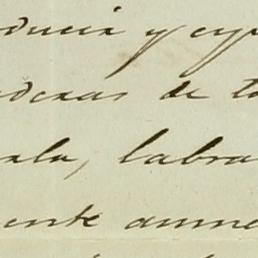 ducir y esp
deras de to
ala, labra
ente aume